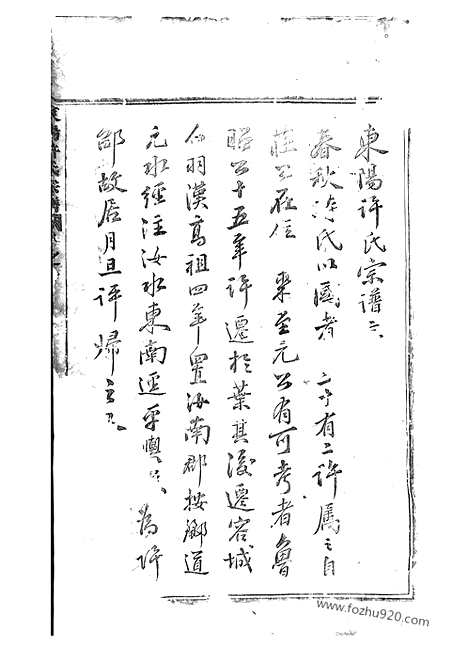 東陽許氏宗譜
春秋許氏以國者 有二許屬之自
莊公在位 至元公有可考者魯
昭公十五年許遷於葉其後遷容城
白羽漢高祖四年置汝南郡按酈道
元水經注汝水東南逕平輿 為許
邵故居月旦評歸
東陽許氏宗譜
www.fozhu920.com